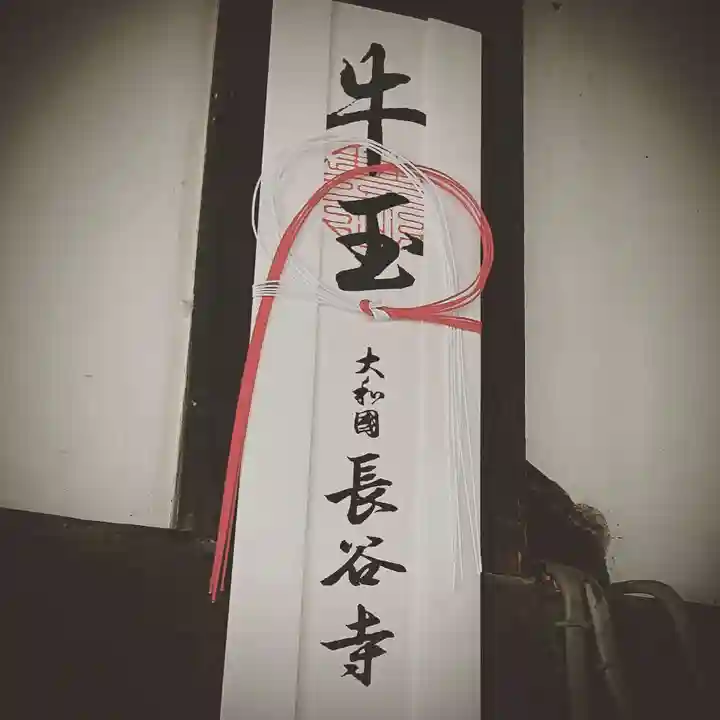 牛玉
大和國
長谷寺